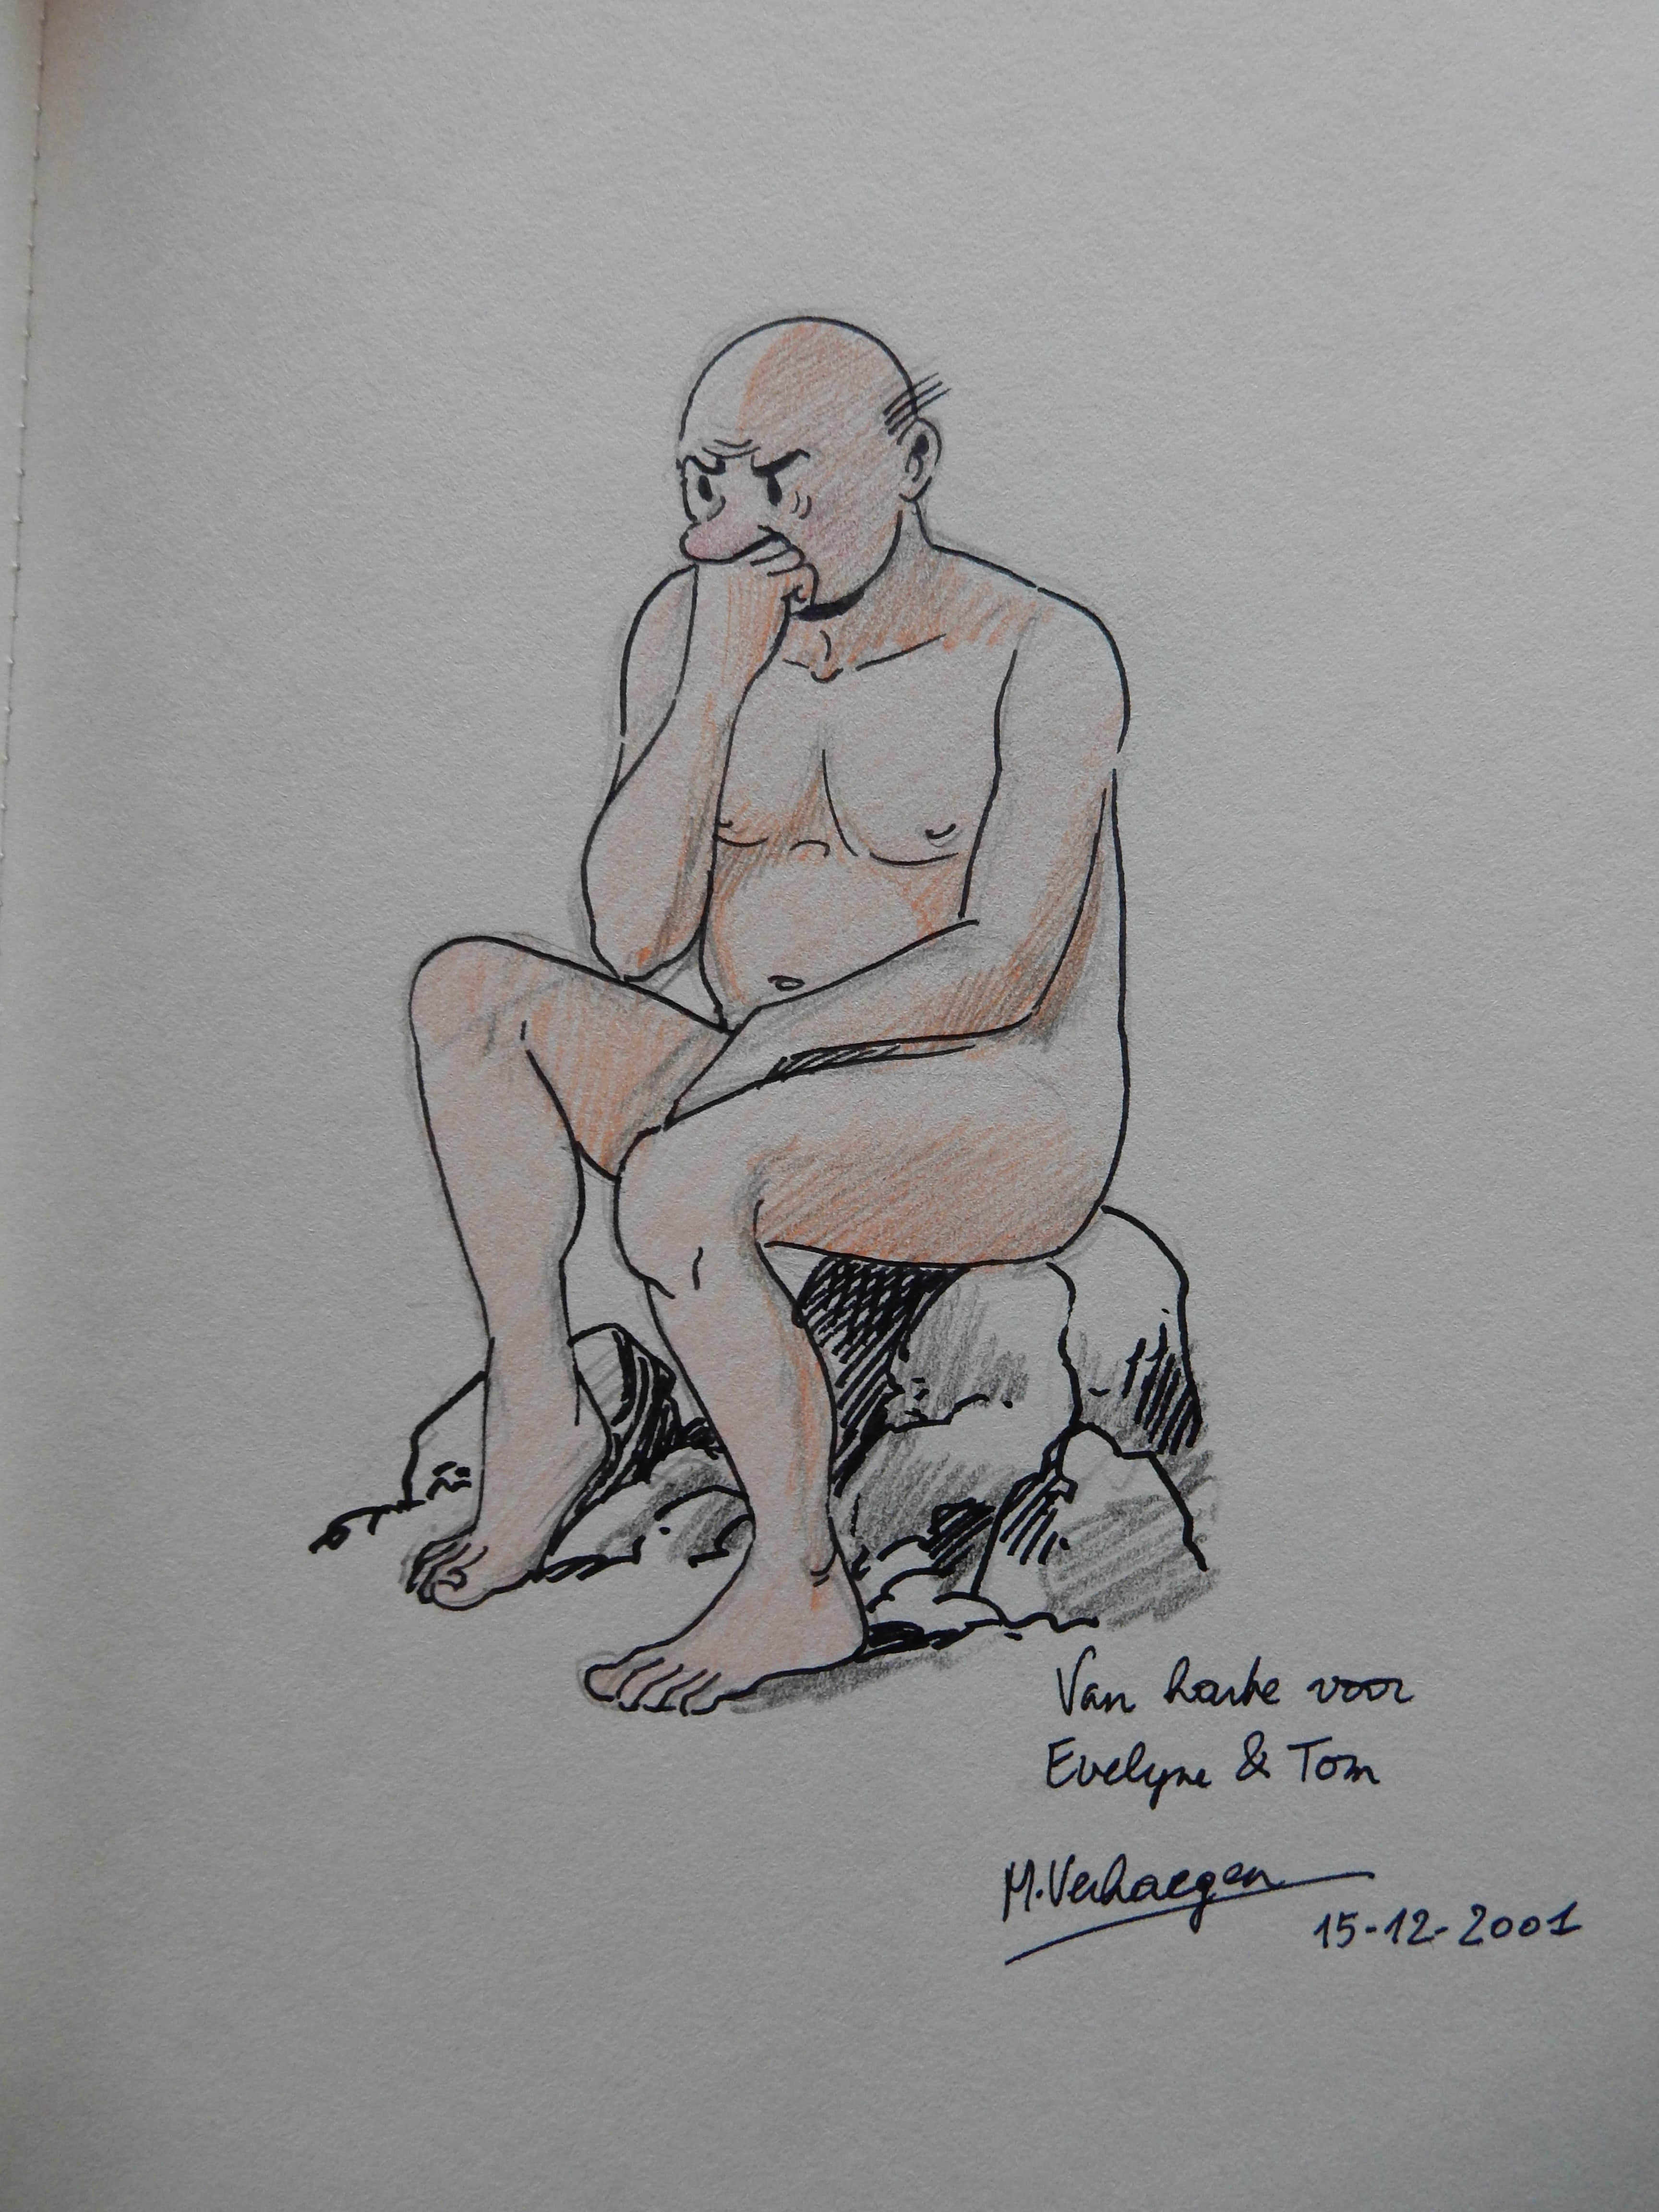 Van harte voor
Evelyne & Tom
M. Verhaegen
15-12-2001